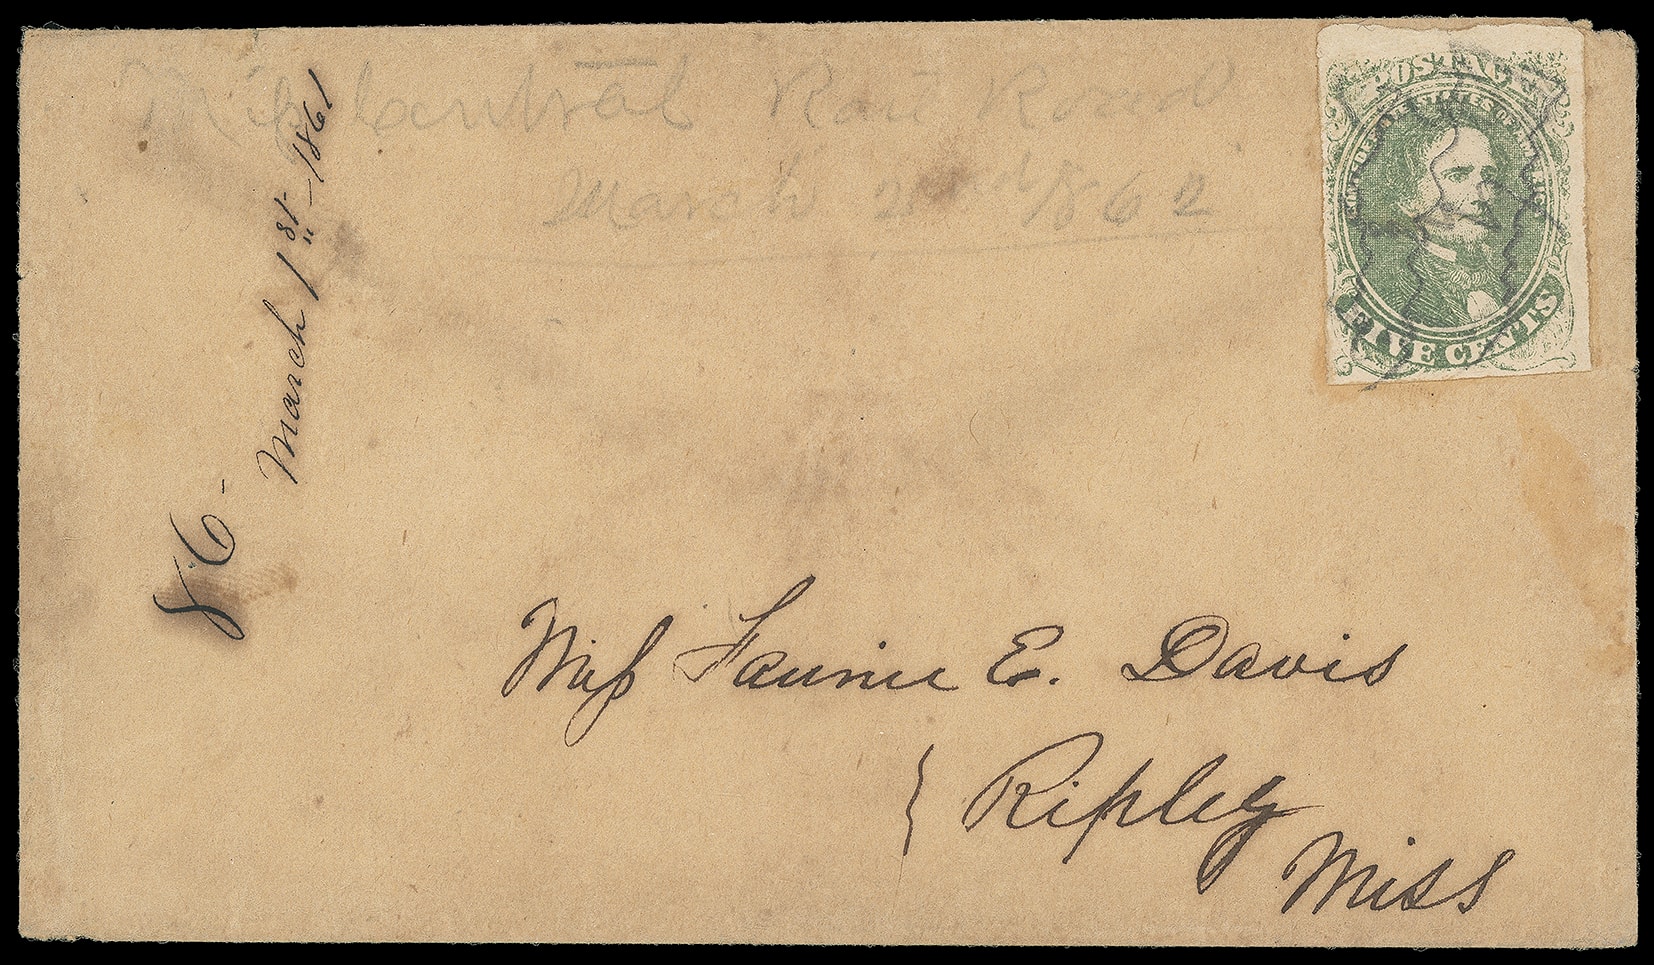 Miss Central Rail Road
March 2nd 1862
86-
March 1st 1861
POSTAGE
CONFEDERATE STATES OF AMERICA
FIVE CENTS
Miss Fannie E. Davis
Ripley
Miss